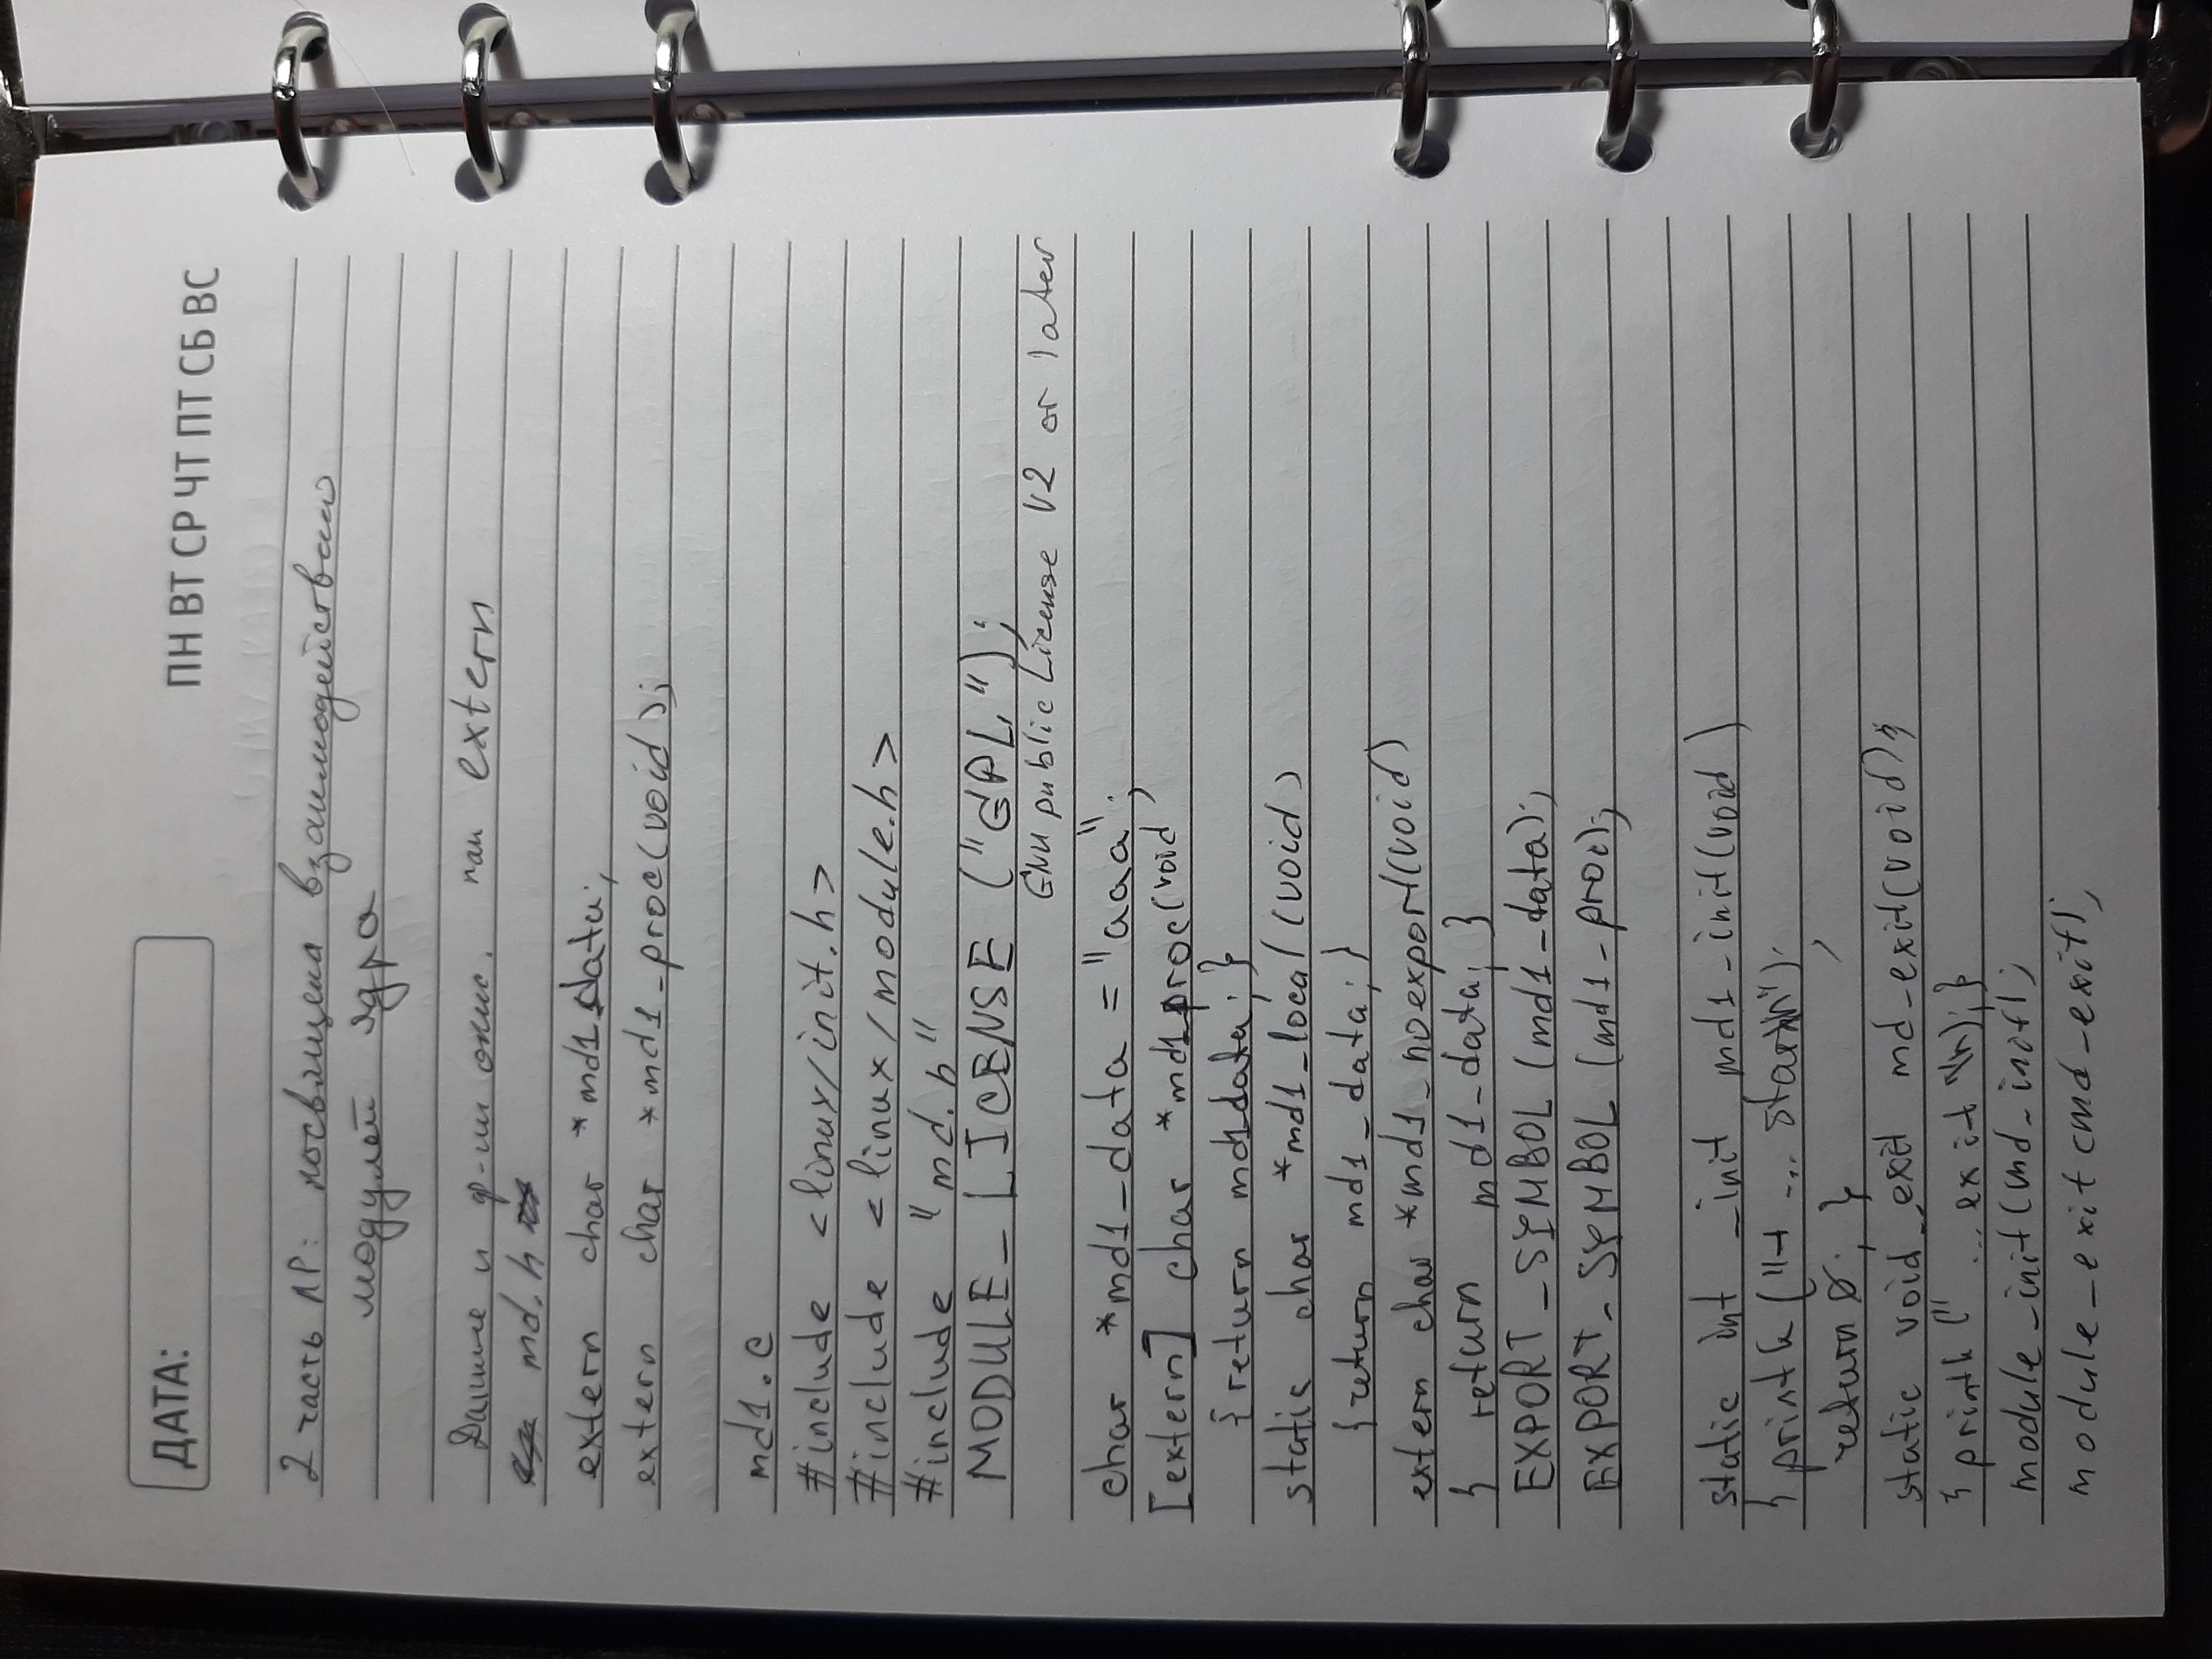 ДАТА:
ПН ВТ СР ЧТ ПТ СБ ВС
2 часть ЛР: посвящена взаимодействию
модулей ядра
Данные и ф-ии опис. как extern
md.h
extern char *md1_data;
extern char *md1_proc(void);
md1.c
#include <linux/init.h>
#include <linux/module.h>
#include "md.h"
MODULE_LICENSE ("GPL");
GNU public License V2 or later
char *md1_data = "aaa";
[extern] char *md1_proc(void
{return md1_data;}
static char *md1_local (void)
{return md1_data;}
extern char *md1_noexport(void)
{ return md1_data; }
EXPORT_SYMBOL (md1_data);
EXPORT_SYMBOL (md1_proc);
static int _init md1_init(void)
{ printk ("+ ... start\n");
return 0; }
static void _exit md_exit(void){
{ printk (" ... exit \n");}
module_init(md_init);
module_exit(md_exit);